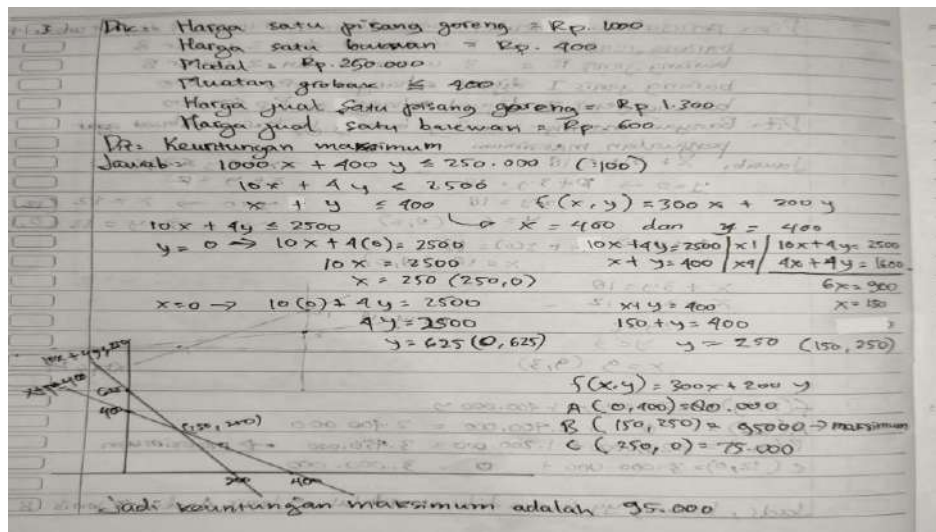 3. Dik: Harga satu pisang goreng = Rp. 1000
Harga satu bakwan = Rp. 400
Modal = Rp. 250.000
Muatan grobak ≤ 400
Harga jual satu pisang goreng = Rp 1.300
Harga jual satu bakwan = Rp. 600
Dit: Keuntungan maksimum
Jawab = 1000 x + 400 y ≤ 250.000 (:100)
10x + 4y ≤ 2500
x + y ≤ 400 f(x,y) = 300 x + 200 y
10x + 4y ≤ 2500 → x = 400 dan y = 400
y = 0 → 10x + 4(0) = 2500 10x + 4y = 2500 | x1 | 10x + 4y = 2500
10x = 2500 x + y = 400 | x4 | 4x + 4y = 1600
x = 250 (250,0) 6x = 900
x = 0 → 10(0) + 4y = 2500 x + y = 400 x = 150
4y = 2500 150 + y = 400
y = 625 (0,625) y = 250 (150,250)
x + y = 400
625
400
f(x.y) = 300x + 200 y
A (0,400) = 80.000
B (150,250) = 95000 → maksimum
C (250,0) = 75.000
400
Jadi keuntungan maksimum adalah 95.000